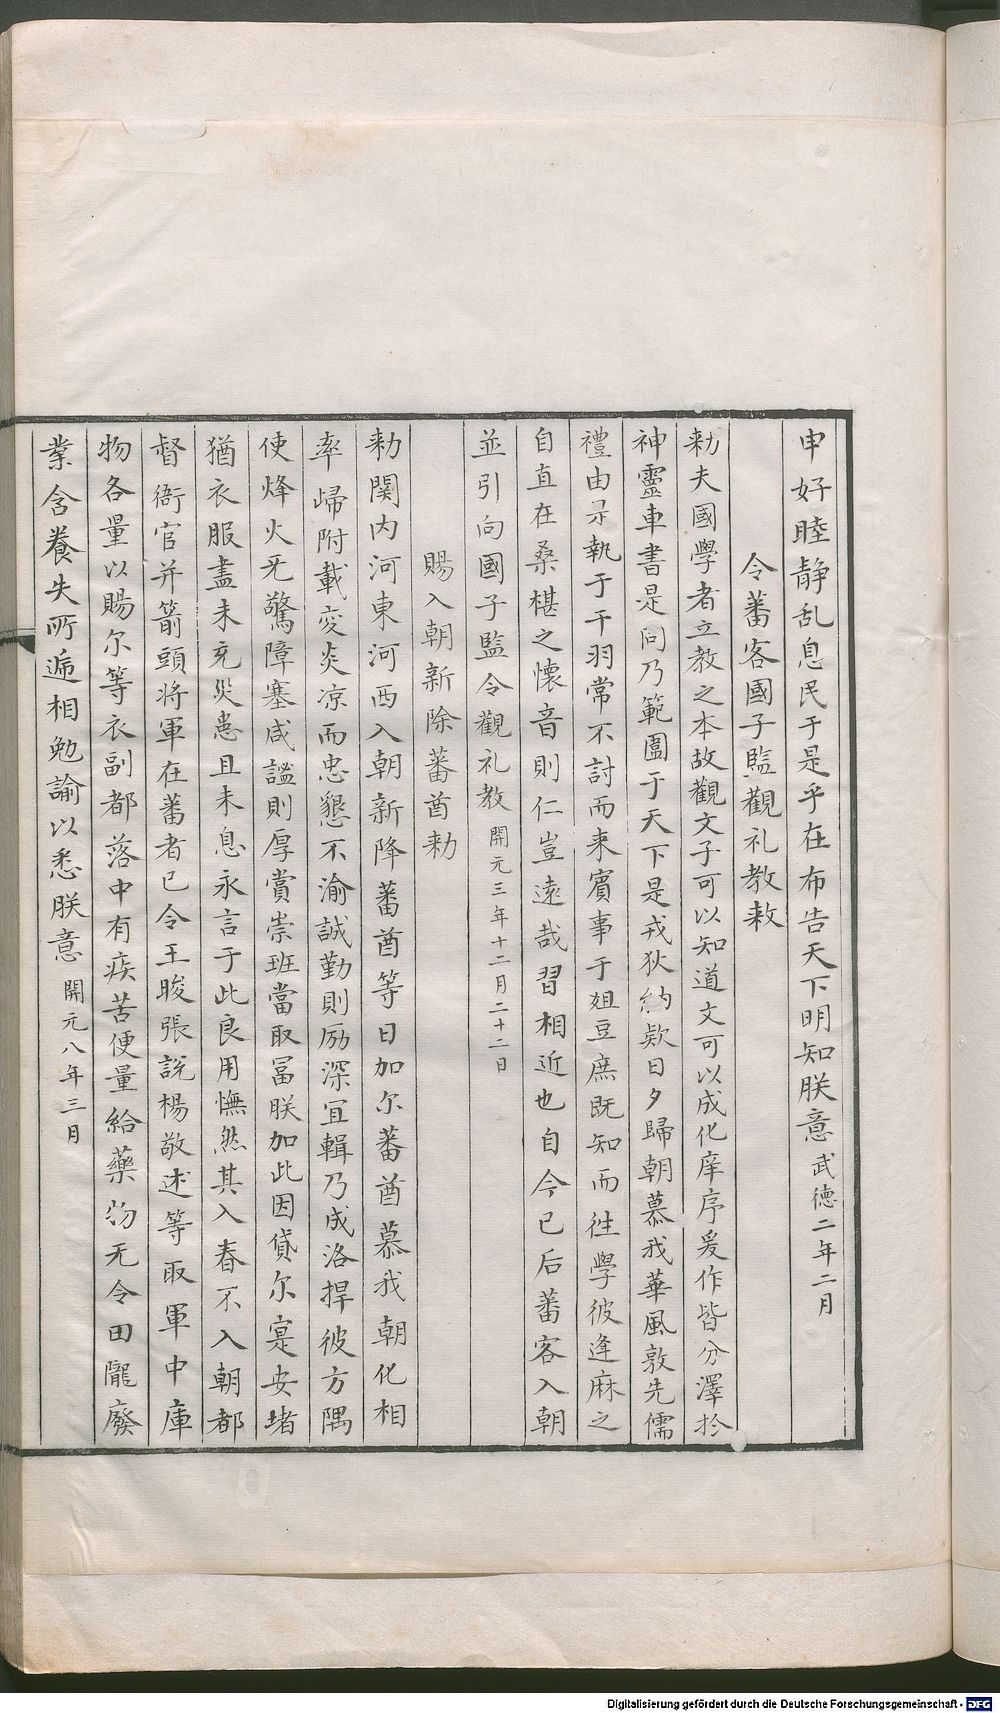 申好睦静乱息民于是乎在布告天下明知朕意武德二年二月
令蕃客國子監觀礼教敕
勑夫國學者立教之本故觀文子可以知道文可以成化庠序爰作皆分澤扵
神靈車書是同乃範圍于天下是戎狄納欵日夕歸朝慕我華風敦先儒
禮由是執于干羽常不討而来賓事于俎豆庶既知而徃學彼逢麻之
自直在桑椹之懷音則仁豈遠哉習相近也自今已后蕃客入朝
並引向國子監令觀礼教開元三年十二月二十二日
賜入朝新除蕃酋勑
勑関内河東河西入朝新降蕃酋等日加尔蕃酋慕我朝化相
率歸附載変炎凉而忠懇不渝誠勤則励深宜輯乃成洛捍彼方隅
使烽火无驚障塞咸謐則厚賞崇班當取冨朕加此因貸尔寔安堵
猶衣服盡未充災患且未息永言于此良用憮然其入春不入朝都
督衙官并箭頭将軍在蕃者已令王晙張説楊敬述等取軍中庫
物各量以賜尔等衣副都落中有疾苦便量給藥物无令田隴廢
業含養失所逓相勉諭以悉朕意開元八年三月
Digitalisierung gefördert durch die Deutsche Forschungsgemeinschaft - DFG